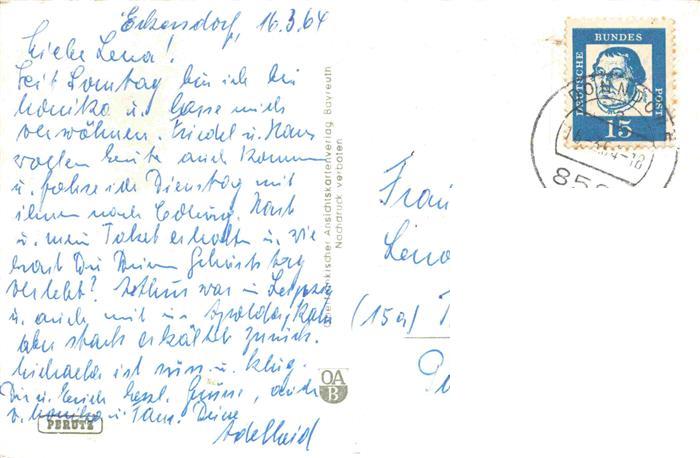 Eckersdorf, 16.3.64
Liebe Lena!
Seit Sonntag bin ich bei
Monika u. lasse mich
verwöhnen. Friedel u. Hans
wollen heute auch kommen
u. fahre ich Dienstag mit
ihnen nach Coburg. Hast
u. mein Paket erhalten u. wie
hast Du Deinen Geburtstag
verlebt? war in Leipzig
u. auch mit in Apolda, kam
aber stark erkältet zurück.
Michaela ist süss u. klug.
Dir u. Erich herzl. Grüsse, auch
v. Monika u. Hans. Deine
Adelheid
PERUTZ
Oberfränkischer Ansichtskartenverlag Bayreuth
Nachdruck verboten
OA
B
DEUTSCHE BUNDES POST
15
Frau
Lena
(15a)